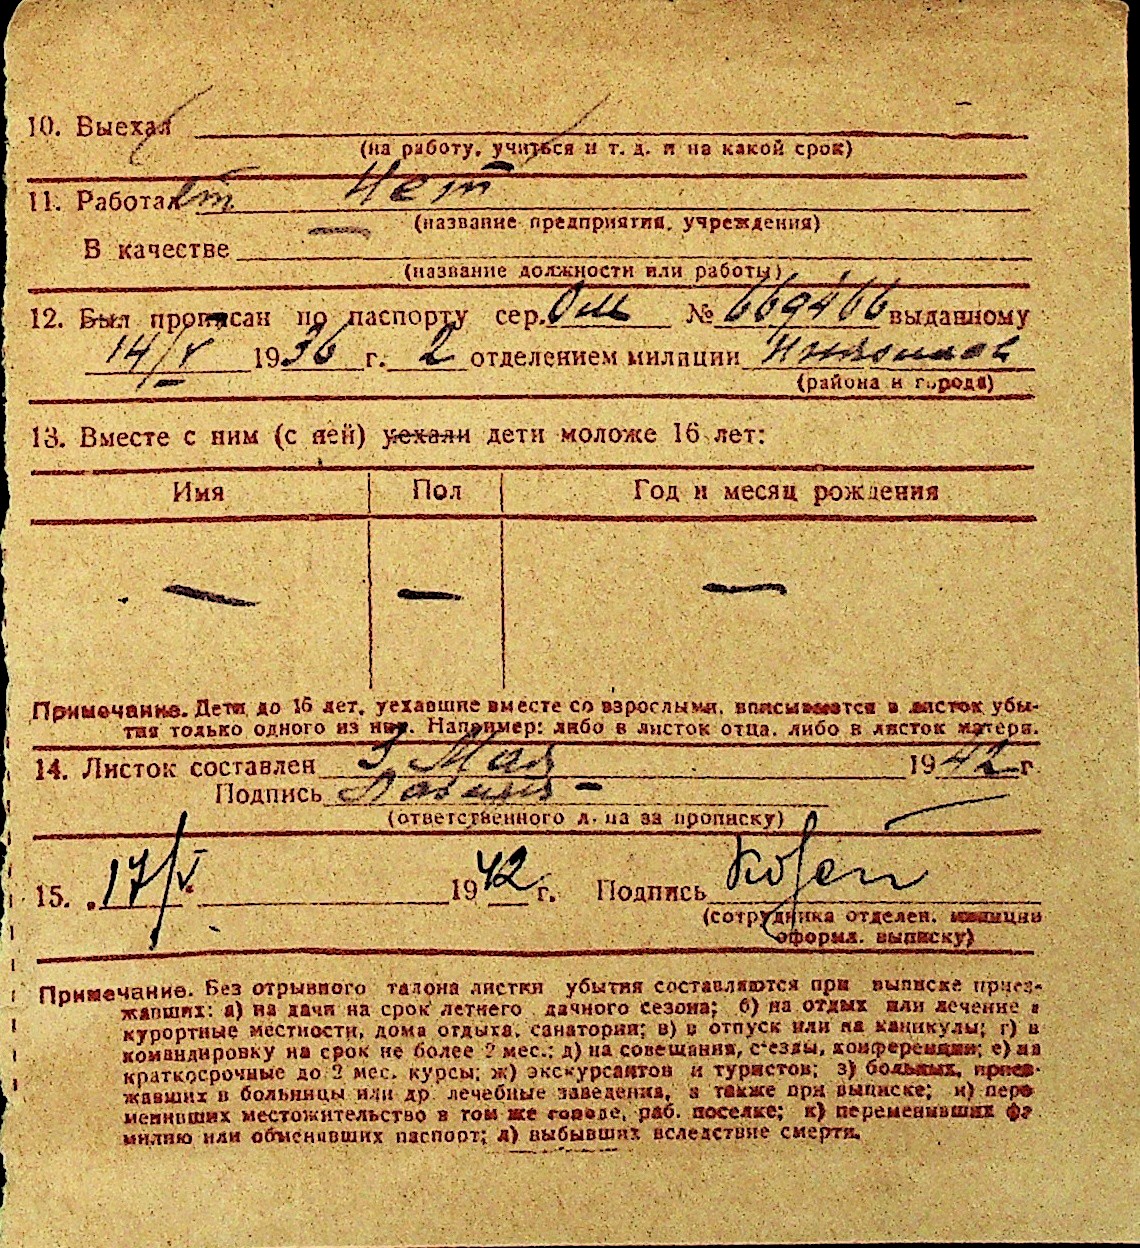 10. Выехал
(на работу, учиться и т. д. и на какой срок)
11. Работал Нет
(название предприятия, учреждения)
В качестве —
(название должности или работы)
12. Был прописан по паспорту сер. № 669466 выданному
14/V 1936 г. 2 отделением милиции
(района и города)
13. Вместе с ним (с ней) уехали дети моложе 16 лет:
Имя Пол Год и месяц рождения
— — —
Примечание. Дети до 16 лет, уехавшие вместе со взрослыми, вписываются в листок убы-
тия только одного из них. Например: либо в листок отца, либо в листок матери.
14. Листок составлен 3 Мая 1942 г.
Подпись
(ответственного л-ца за прописку)
15. 17/V 1942 г. Подпись
(сотрудника отделен. милиции
оформл. выписку)
Примечание. Без отрывного талона листки убытия составляются при выписке приез-
жавших: а) на дачи на срок летнего дачного сезона; б) на отдых или лечение в
курортные местности, дома отдыха, санатории; в) в отпуск или на каникулы; г) в
командировку на срок не более 2 мес.; д) на совещания, с'езды, конференции; е) на
краткосрочные до 2 мес. курсы; ж) экскурсантов и туристов; з) больных, приез-
жавших в больницы или др. лечебные заведения, а также при выписке; и) пере-
менивших местожительство в том же городе, раб. поселке; к) переменивших фа-
милию или обменявших паспорт; л) выбывших вследствие смерти.